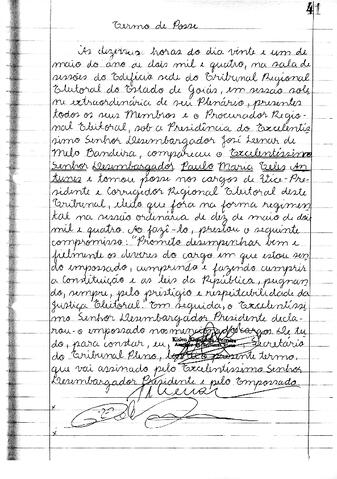 41
Termo de Posse
Às dezesseis horas do dia vinte e um de
maio do ano de dois mil e quatro, na sala de
sessões do Edifício sede do Tribunal Regional
Eleitoral do Estado de Goiás, em sessão sole
ne extraordinária de seu Plenário, presentes
todos os seus Membros e o Procurador Regio-
nal Eleitoral, sob a Presidência do Excelentís
simo Senhor Desembargador José Lenar de
Melo Bandeira, compareceu o Excelentíssimo
Senhor Desembargador Paulo Maria Teles An
tunes e tomou posse nos cargos de Vice-Pre-
sidente e Corregidor Regional Eleitoral deste
Tribunal, eleito que fora na forma regimen
tal na sessão ordinária de dez de maio de dois
mil e quatro. Ao fazê-lo, prestou o seguinte
compromisso: "Prometo desempenhar bem e
fielmente os deveres do cargo em que estou sen
do empossado, cumprindo e fazendo cumprir
a Constituição e as leis da República, pugnan
do, sempre, pelo prestígio e respeitabilidade da
Justiça Eleitoral. Em seguida, o Excelentís
simo Senhor Desembargador Presidente decla-
rou o empossado nos cargos. De tu
do, para constar, eu, Secretário
do Tribunal Pleno, lavrei o presente termo,
que vai assinado pelo Excelentíssimo Senhor
Desembargador Presidente e pelo Empossado